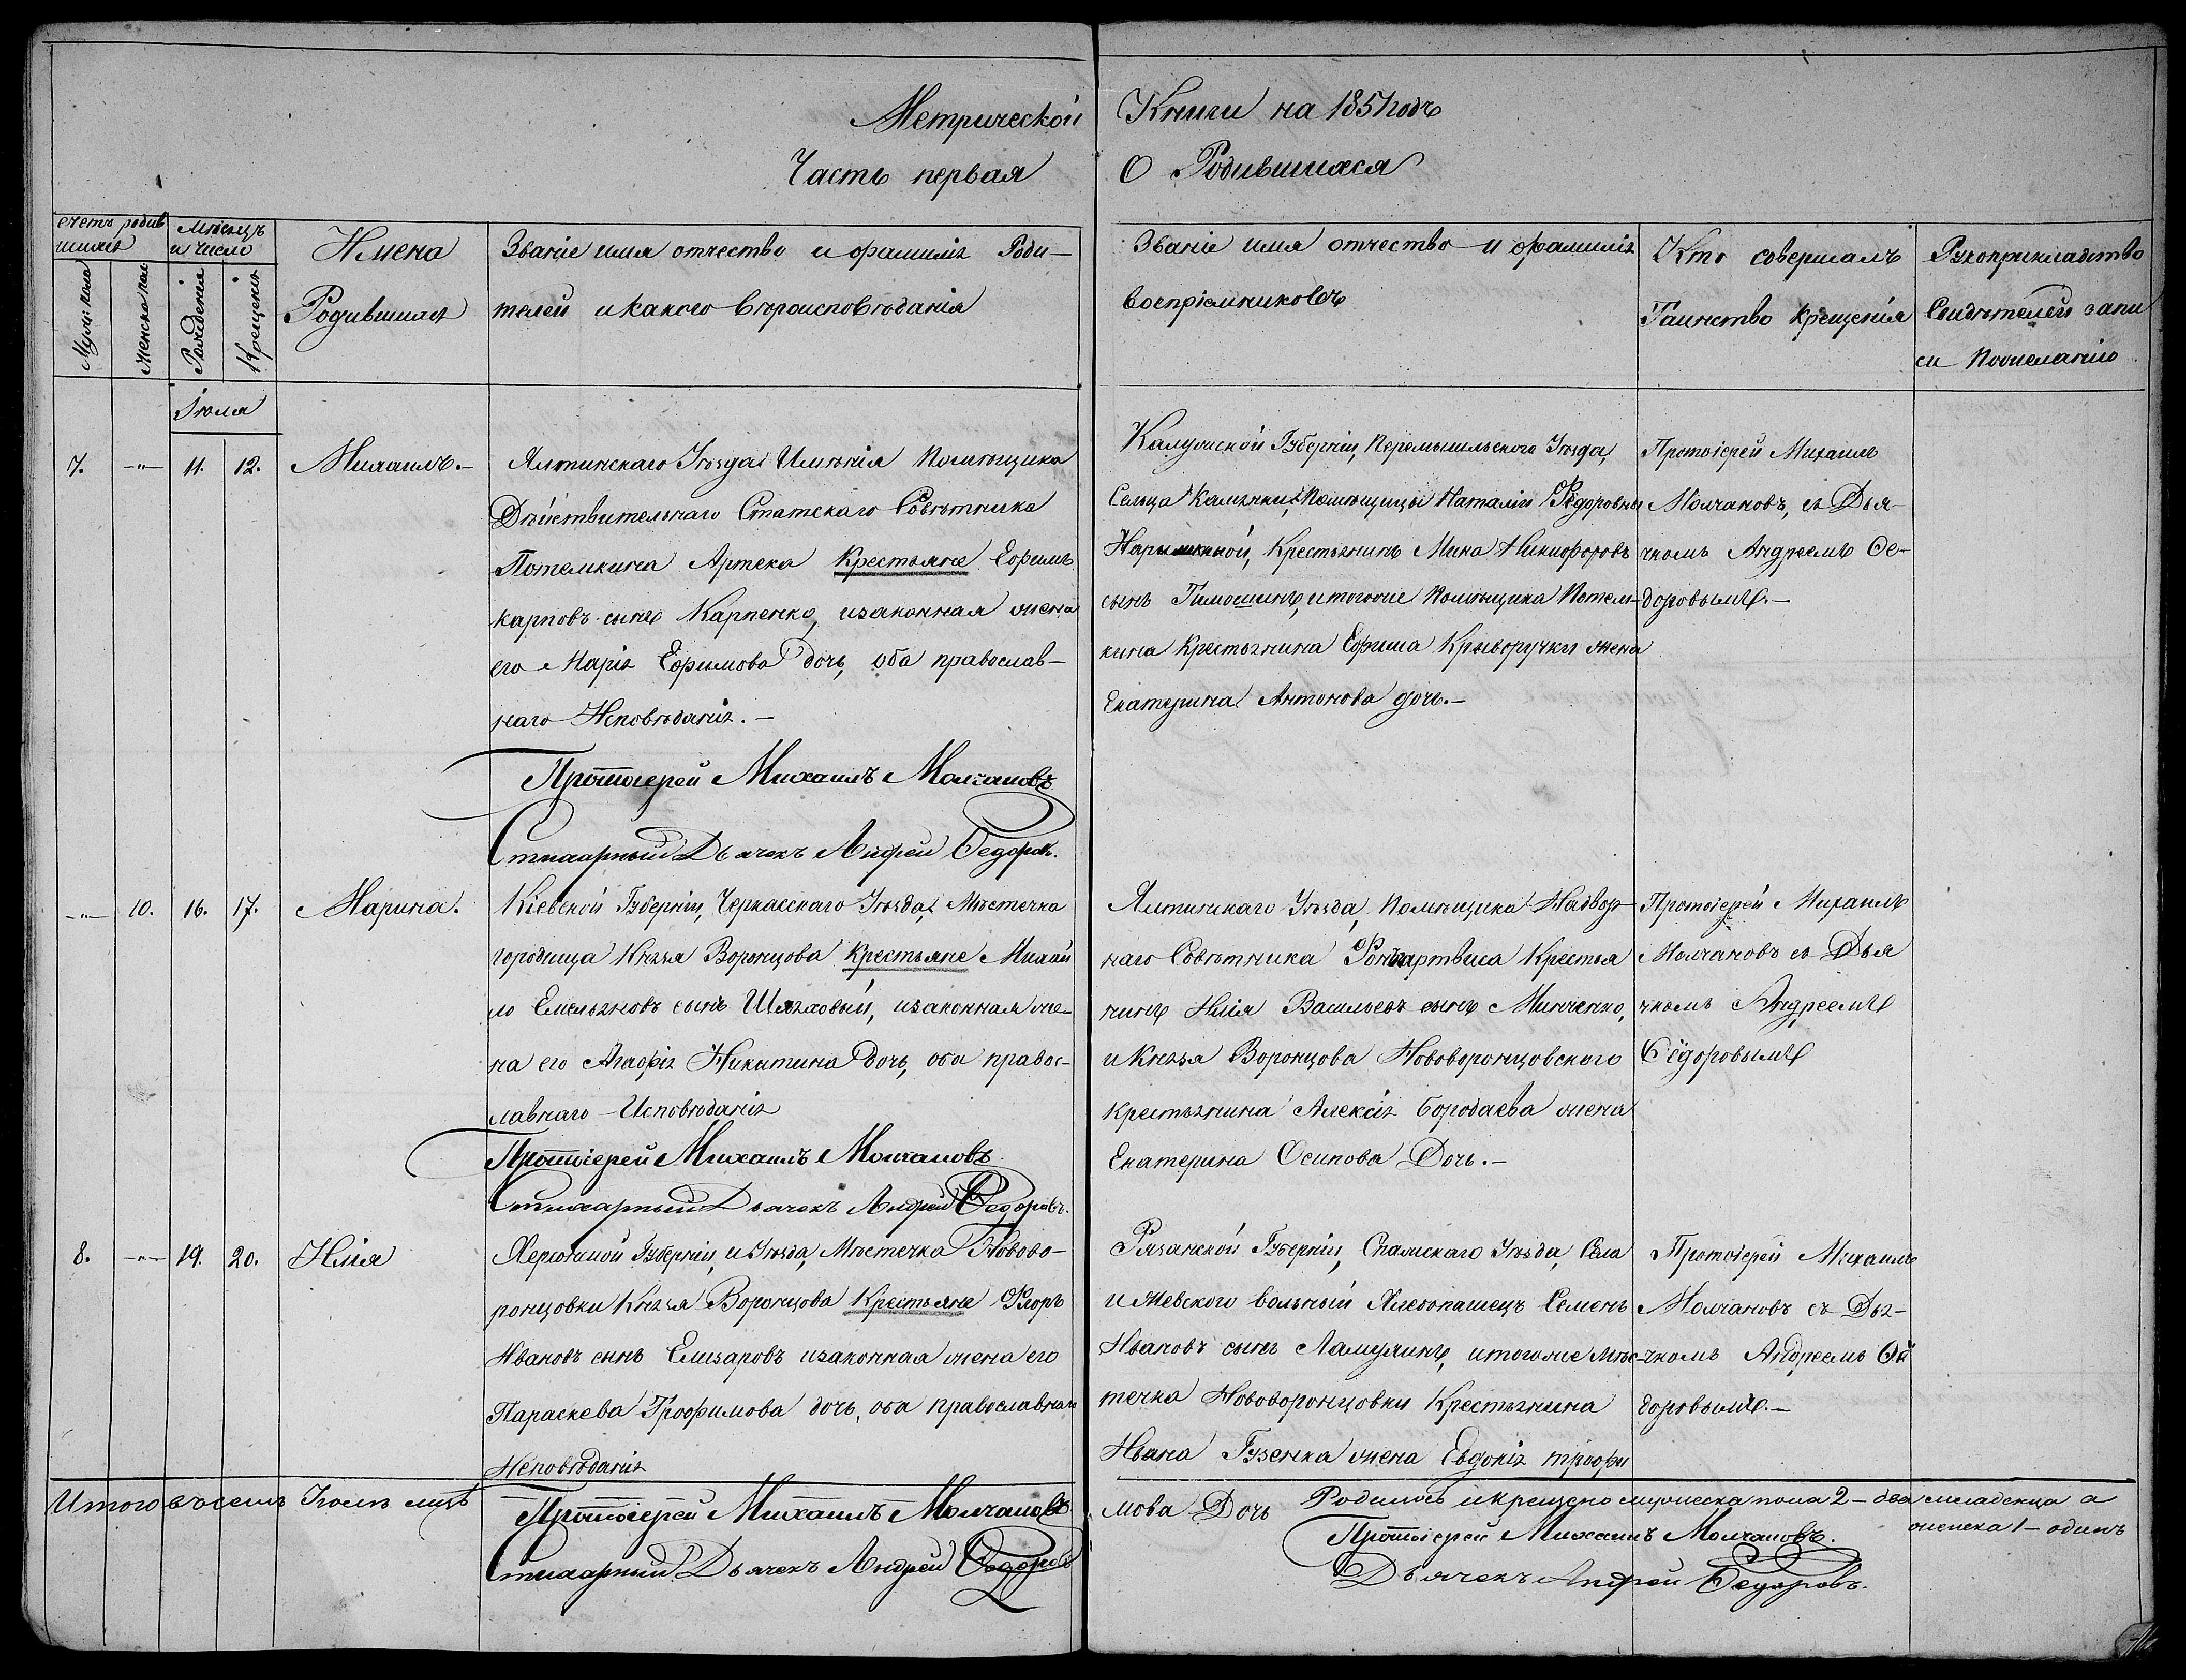 Метрической Книги на 1851 годъ
Часть первая О Родившихся
счетъ родив
шихся
Мѣсяцъ
и число
Мужс: пола
Женска пол
Рожденія
Крещенія
Имена
Родившихся
Званіе имя отчество и фамилія Роди-
телей и какого вѣроисповѣданія
Званіе имя отчество и фамилія
воспріемниковъ
Кто совершалъ
Таинство крещенія
Рукоприкладство
Свидѣтелей запи
си по желанію
Іюля
7. -"- 11. 12. Михаилъ.-
Ялтинскаго Уѣзда Имѣнія помѣщика
Дѣйствительнаго Статскаго Совѣтника
Потемкина Артека Крестьяне Ефимъ
карповъ сынъ Карпенко, и законная жена
его Марія Ефимова дочь, оба православ-
наго Исповѣданія.-
Протоіерей Михаилъ Молчановъ
Стихарный Дьячекъ Андрей Ѳедоровъ.
Калужской Губерніи, Перемышльского Уѣзда,
Сельца помѣщицы Наталіи Ѳедоровны
Нарышкиной, Крестьянинъ Мина Никифоровъ
сынъ Тимошинъ, и того же помѣщика Потем-
кина Крестьянина Ефима Криворучки жена
Екатерина Антонова дочь.-
Протоіерей Михаилъ
Молчановъ, съ Дья-
чкомъ Андреемъ Ѳе-
доровымъ.-
-"- 10. 16. 17. Марина.
Кіевской Губерніи, Черкасскаго Уѣзда, Мѣстечка
городища Князя Воронцова Крестьяне Михай
ло Емельяновъ сынъ и законная же-
на его Агафія Никитина дочь, оба правос-
лавнаго Исповѣданія
Протоіерей Михаилъ Молчановъ
Стихарный Дьячекъ Андрей Ѳедоровъ.
Ялтинскаго Уѣзда, помѣщика Надвор-
наго Совѣтника Крестья
нинъ Илія Васильевъ сынъ Минченко,
и Князя Воронцова Нововоронцовского
крестьянина Алексія Бородаева жена
Екатерина Осипова Дочь.-
Протоіерей Михаилъ
Молчановъ съ Дья
чкомъ Андреемъ
Ѳёдоровымъ
8. -"- 19. 20. Илія
Херсонской Губерніи, и Уѣзда, Мѣстечка Новово-
ронцовки Князя Воронцова Крестьяне Флоръ
Ивановъ сынъ Елизаровъ и законная жена его
Параскева Трофимова дочь, оба православнаго
Исповѣданія
Протоіерей Михаилъ Молчановъ
Стихарный Дьячекъ Андрей Ѳедоровъ
Рязанской Губерніи, Спасскаго Уѣзда, Села
Ижевского вольный Хлебопашецъ Семенъ
Ивановъ сынъ и того же мѣс-
течка Нововоронцовки Крестьянина
Ивана Гузенка жена Евдокія трофи
мова Дочь
Протоіерей Михаилъ
Молчановъ съ Дья-
чкомъ Андреемъ Ѳе
доровымъ.-
Итого въ семъ Іюлѣ мцѣ Родилось и крещено мужеска пола 2 - два младенца а
женска 1 - одинъ
Протоіерей Михаилъ Молчановъ.
Дьячекъ Андрей Ѳедоровъ.